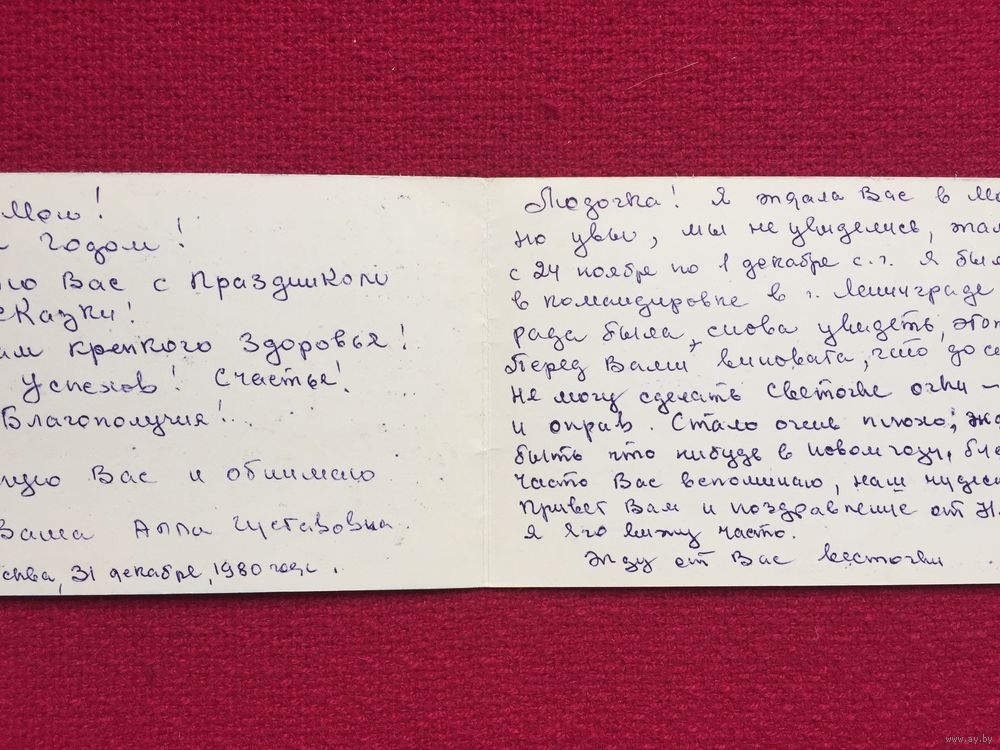 Мою!
Годом!
ю Вас с Праздником
сказки!
ам крепкого Здоровья!
Успехов! Счастья!
Благополучия!
Вас и обнимаю
Ваша Алла Густавовна
сква, 31 декабря, 1980 года.
Людочка! Я ждала Вас в Мо
но увы, мы не увиделись, жал
с 24 ноября по 1 декабря с.г. я был
в командировке в г. Ленинграде
рада была, снова увидеть, этот
Перед Вами виновата, что до се
не могу сделать Светочке очки –
и оправ. Стало очень плохо; жд
быть что нибудь в новом году,
часто Вас вспоминаю, наш чудес
Привет Вам и поздравление от Н
я Его вижу часто.
Жду от Вас весточки
www.ay.by